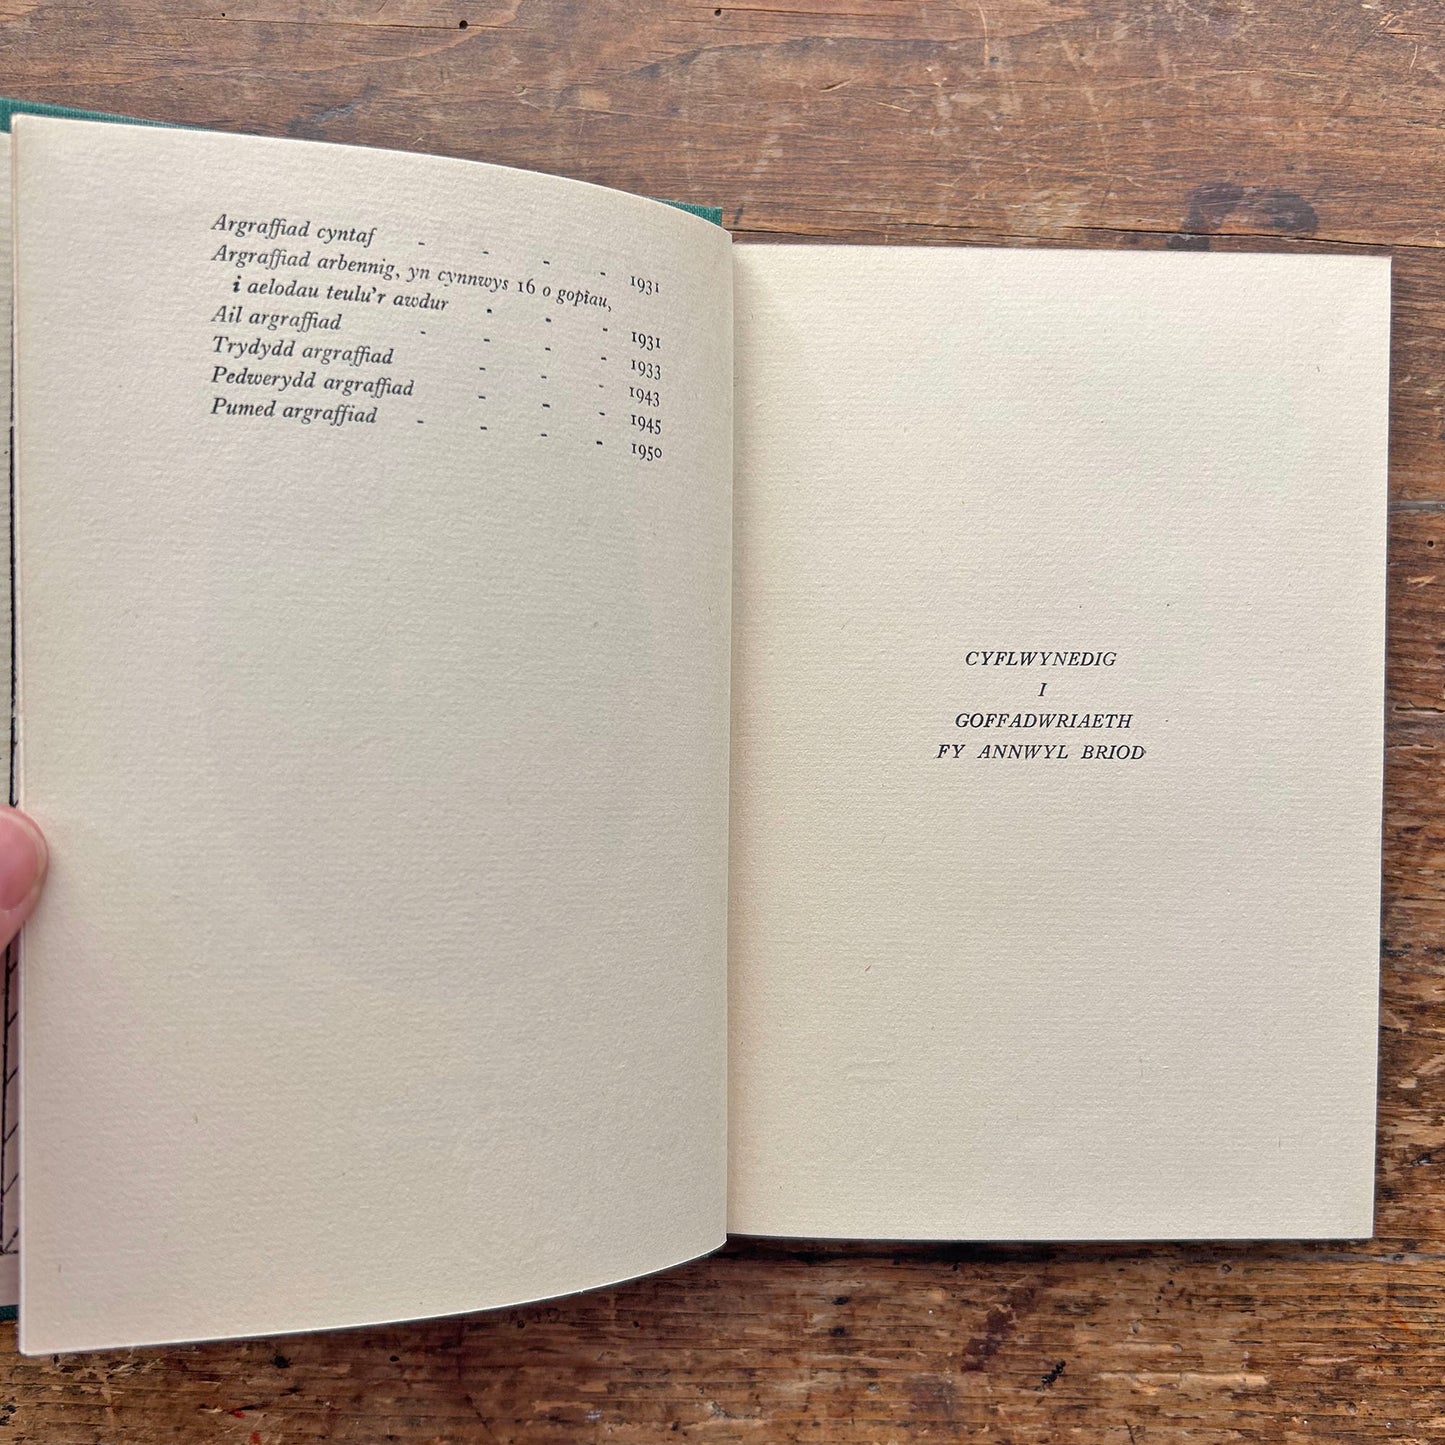 Argraffiad cyntaf - - - - 1931
Argraffiad arbennig, yn cynnwys 16 o gopïau,
i aelodau teulu'r awdur - - - 1931
Ail argraffiad - - - - 1933
Trydydd argraffiad - - - 1943
Pedwerydd argraffiad - - - 1945
Pumed argraffiad - - - - 1950
CYFLWYNEDIG
I
GOFFADWRIAETH
FY ANNWYL BRIOD